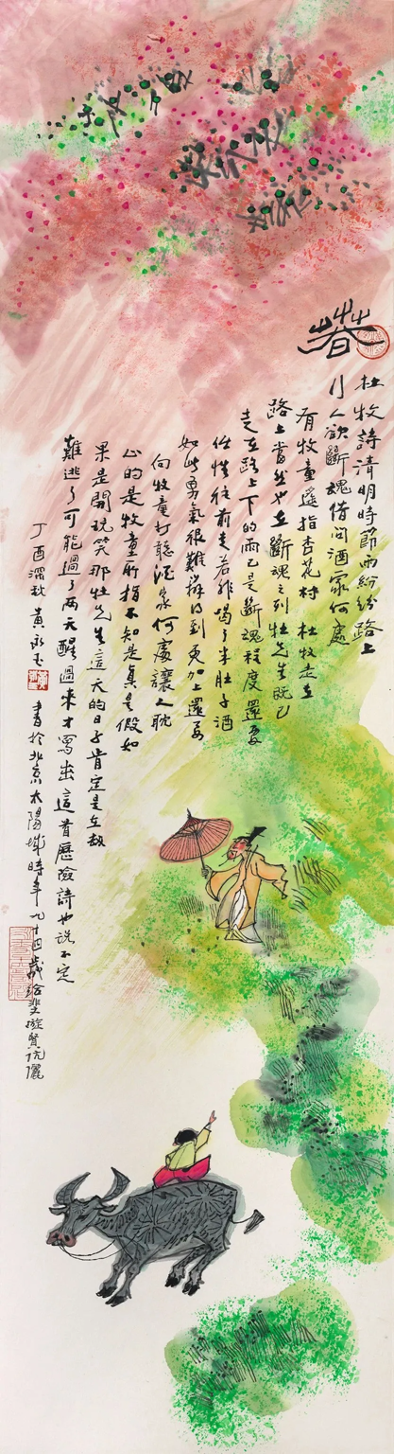 春
杜牧詩清明時節雨紛紛路上
行人欲斷魂借問酒家何處
有牧童遥指杏花村 杜牧走在
路上當然也在斷魂之列杜先生既已
走在路上下的雨已是斷魂程度還要
任性往前走若非喝了半肚子酒
如此勇氣很難辦得到更加上還要
向牧童打聽酒家何處讓人耽
心的是牧童所指不知是真是假如
果是開玩笑那杜先生這一天的日子肯定是在劫
難逃了可能過了兩天醒過來才寫出這首歷險詩也說不定
丁酉深秋 黄永玉 書於北京太陽城時年九十四歲
賢伉儷